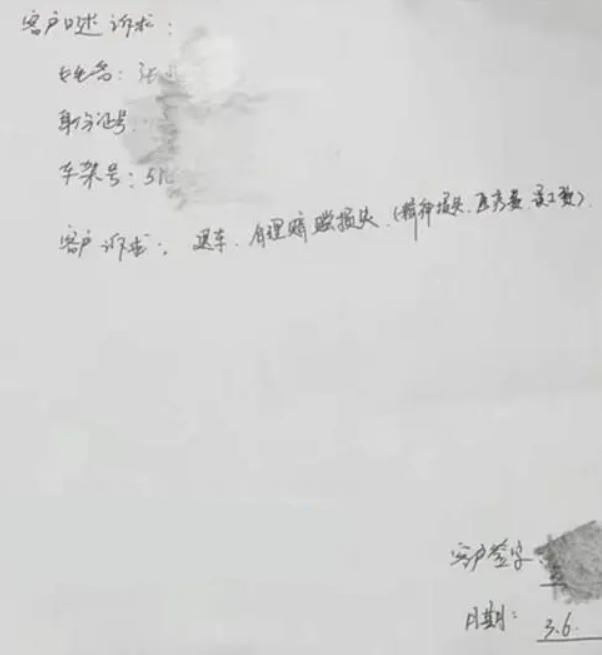 客户口述诉求：
姓名：张
身份证号
车架号：51
客户诉求：退车、合理赔赔损失（精神损失、医疗费、误工费）
客户签字
日期：3.6.